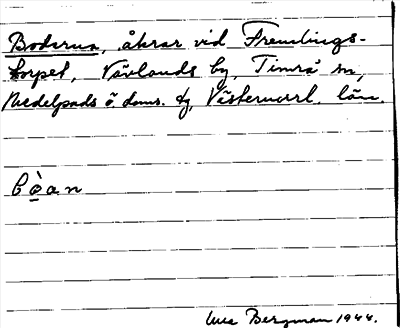 Bodarna, åkrar vid Fremlings-
torpet, Vävlands by, Timrå sn,
Medelpads ö. doms. tg, Västernorrl. län.
bò̱an
Uno Bergman 1944.